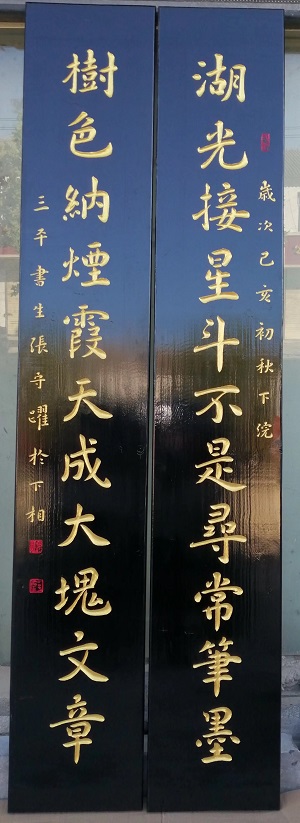 歲次己亥初秋下浣
湖光接星斗不是尋常筆墨
樹色納煙霞天成大塊文章
三平書生張守躍於下相